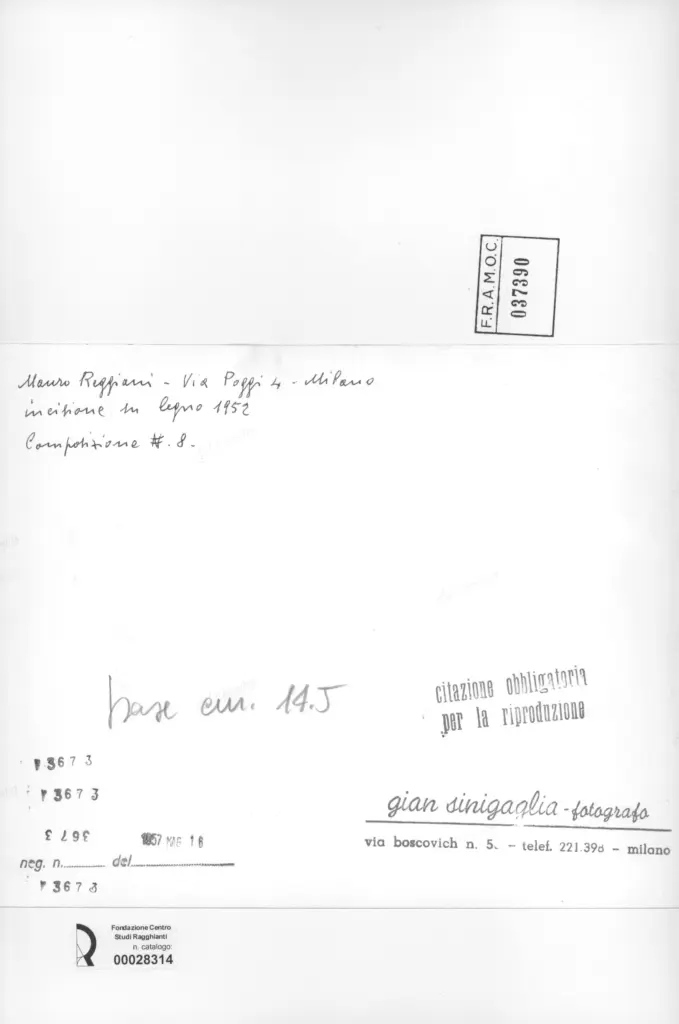 F.R.A.M.O.C.
037390
Mauro Reggiani - Via Poggi 4 - Milano
incisione su legno 1952
Composizione #. 8.
base cm. 14.5
citazione obbligatoria
per la riproduzione
3673
3673
3673
1957 MAG 16
neg. n. del
3673
gian sinigaglia - fotografo
via boscovich n. 5. - telef. 221.398 - milano
Fondazione Centro
Studi Ragghianti
n. catalogo:
00028314